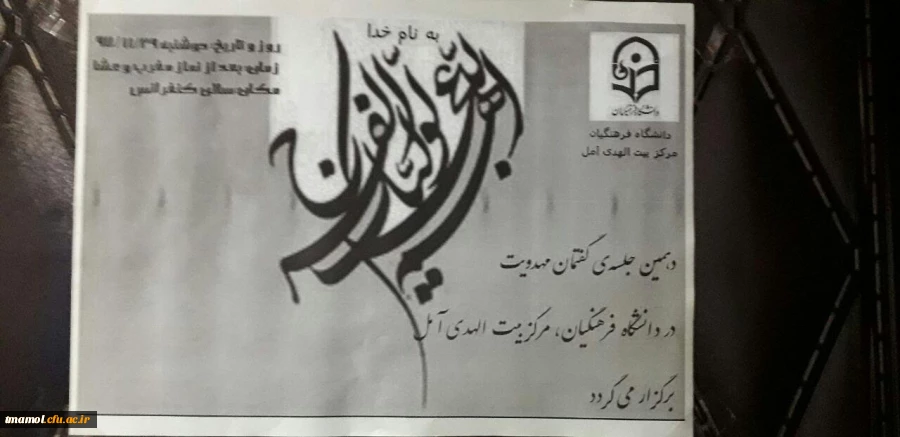 به نام خدا
روز و تاریخ: دوشنبه
زمان: بعد از نماز مغرب و عشا
مکان: سالن کنفرانس
دانشگاه فرهنگیان
دانشگاه فرهنگیان
مرکز بیت الهدی آمل
اللهم عجل لولیک الفرج
دهمین جلسه‌ی گفتمان مهدویت
در دانشگاه فرهنگیان، مرکز بیت الهدی آمل
برگزار می گردد
tmamol.cfu.ac.ir